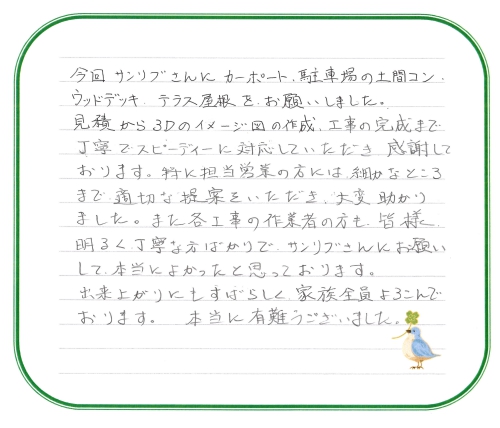 今回 サンリブさんに カーポート、駐車場の土間コン、
ウッドデッキ、テラス屋根を お願いしました。
見積から3Dのイメージ図の作成、工事の完成まで
丁寧でスピーディーに対応していただき 感謝して
おります。特に担当営業の方には、細かなところ
まで適切な提案をいただき、大変 助かり
ました。また各工事の作業者の方も、皆様、
明るく、丁寧な方ばかりで、サンリブさんにお願い
して、本当によかったと思っております。
出来上がりにもすばらしく、家族全員よろこんで
おります。 本当に有難うございました。